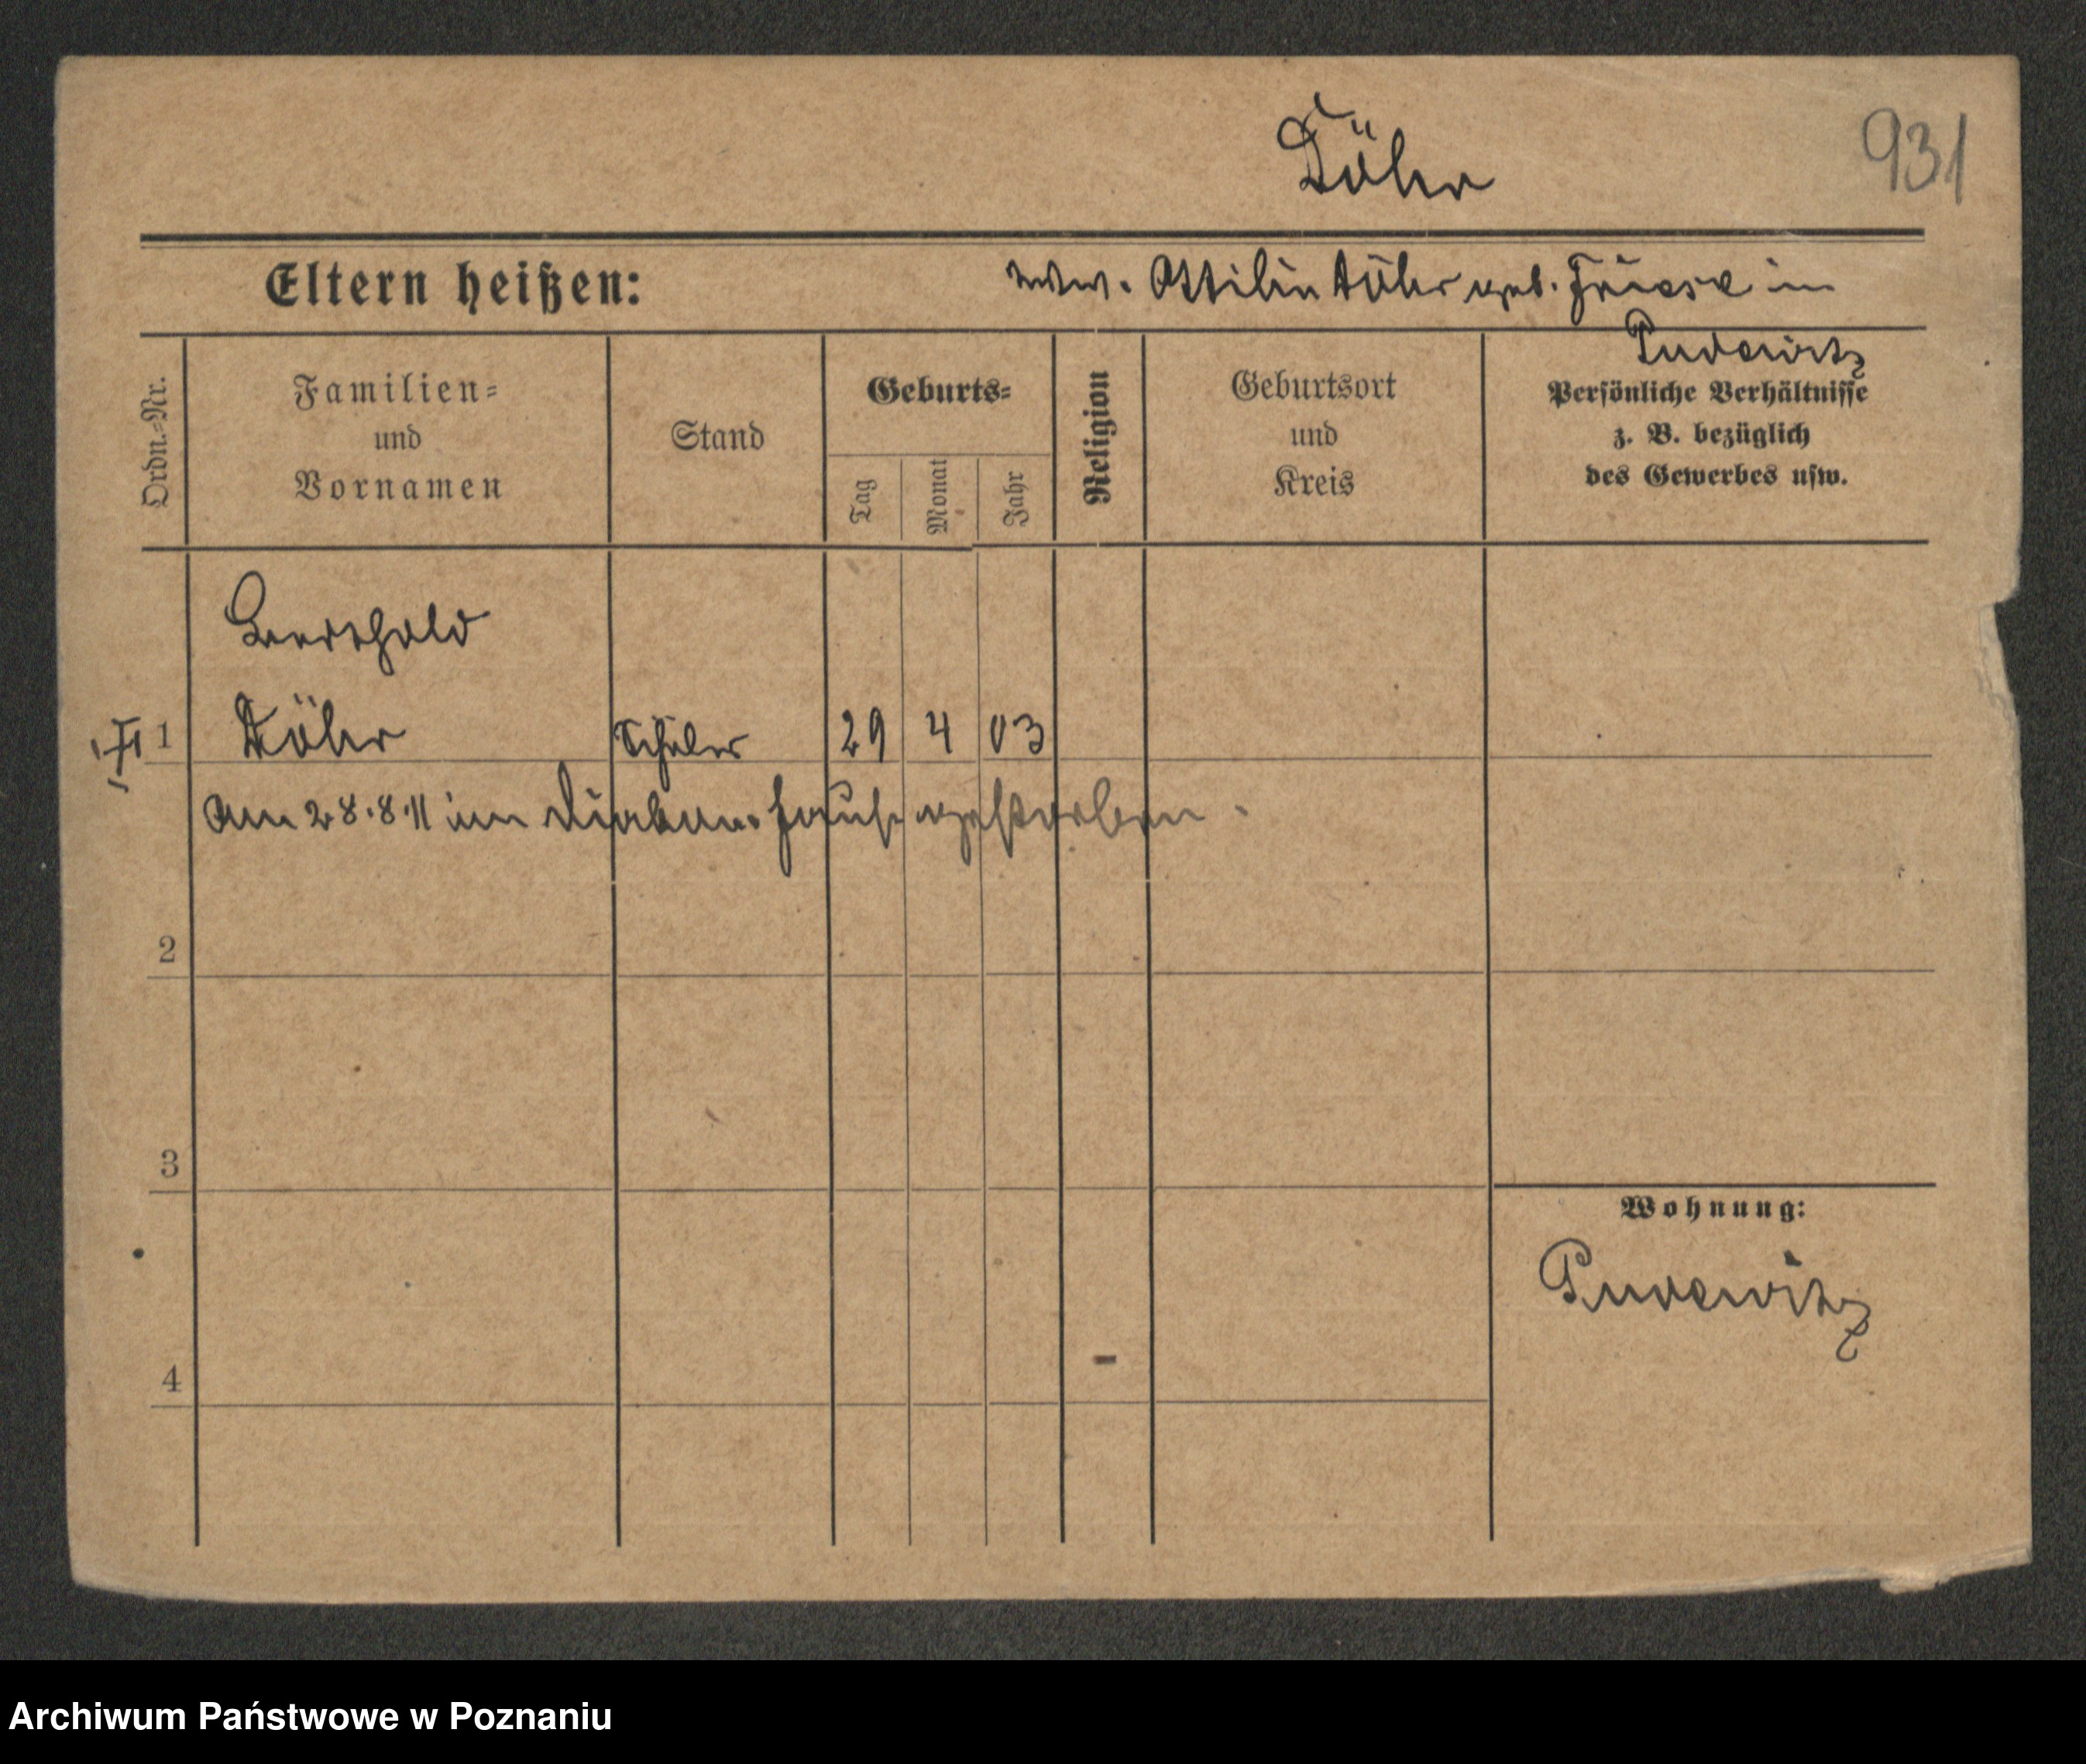 Döhr
931
Eltern heißen: Wtw. Ottilie Döhr geb. Friese in
Pudewitz
Ordn.=Nr.
Familien=
und
Vornamen
Stand
Geburts=
Tag
Monat
Jahr
Religion
Geburtsort
und
Kreis
Persönliche Verhältnisse
z. B. bezüglich
des Gewerbes usw.
Berthold
1 Döhr Schüler 29 4 03
Am 28.8.11 im Diakon. Hause gestorben.
2
3
Wohnung:
Pudewitz
4
Archiwum Państwowe w Poznaniu